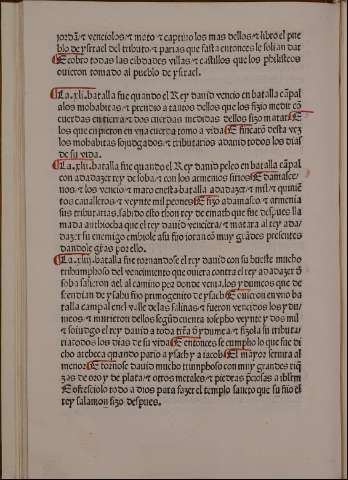 jordã. ⁊ venciolos ⁊ mato ⁊ captiuo los mas dellos ⁊ libro el pue
blo de ysrael del tributo ⁊ parias que fasta entonces le solian dar
E cobro todas las cibdades villas ⁊ castillos que los philisteos
ouieron tomado al pueblo de ysrael.
La .xli. batalla fue quando el Rey dauid vencio en batalla cãpal
alos mobabitas ⁊ prendio a tantos dellos que los fizo medir cõ
cuerdas en tierra ⁊ dos cuerdas medidas dellos fizo matar. E
los que cupieron en vna cuerda tomo a vida E fincarõ desta vez
los mohabitas sojudgados ⁊ tributarios a dauid todos los dias
de su vida.
La .xlii. batalla fue quando el Rey dauid peleo en batalla cãpal
con adadezer rey de soba ⁊ con los armenios sirios E damasce
nos ⁊ los vencio ⁊ mato en esta batalla adadazer ⁊ mil ⁊ quiniẽ
tos caualleros ⁊ veynte mil peones E fizo a damasco ⁊ armenia
sus tributarias. sabido esto thon rey de emath que fue despues lla
mada anthiocha que el rey dauid venciera ⁊ matara al rey ada/
dezer su enemigo embiole asu fijo joran cõ muy grãdes presentes
dandole grãs por ello.
La .xliii. batalla fue tornandose el rey dauid con su hueste mucho
trihumphoso del vencimento que ouiera contra el rey adadezer d̃
soba salieron ael al camino por donde venia. los ydumeos que de
scendian de ysahu fijo primogenito de ysach E ouieron en vno ba
talla campal en el valle de las salinas ⁊ fueron vencidos los ydu/
meos ⁊ murieron dellos segũd cuenta josepho veynte y dos mil
⁊ sojudgo el rey dauid a toda trr̃a d̃ ydumea ⁊ fizola su tributa/
ria todos los dias de su vida E entonces se cumplio lo que fue di
cho a rebeca quando pario a ysach y a iacob El mayor seruira al
menor E tornose dauid mucho triunphoso con muy grandes riq̃
zas de oro y de plata ⁊ otros metales ⁊ piedras p̃ciosas a ihr̃lm
E ofresciolo todo a dios para fazer el templo santo que su fijo el
rey salamon fizo despues.